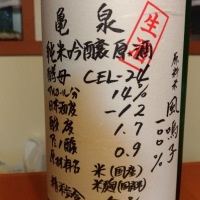 亀泉
生酒
純米吟醸原酒
酵母 CEL-24
アルコール分 14%
日本酒度 -12
酸度 1.7
アミノ酸度 0.9
原材料名 米(国産)
米麹(国産米)
精米歩合
原料米 風鳴子 100%